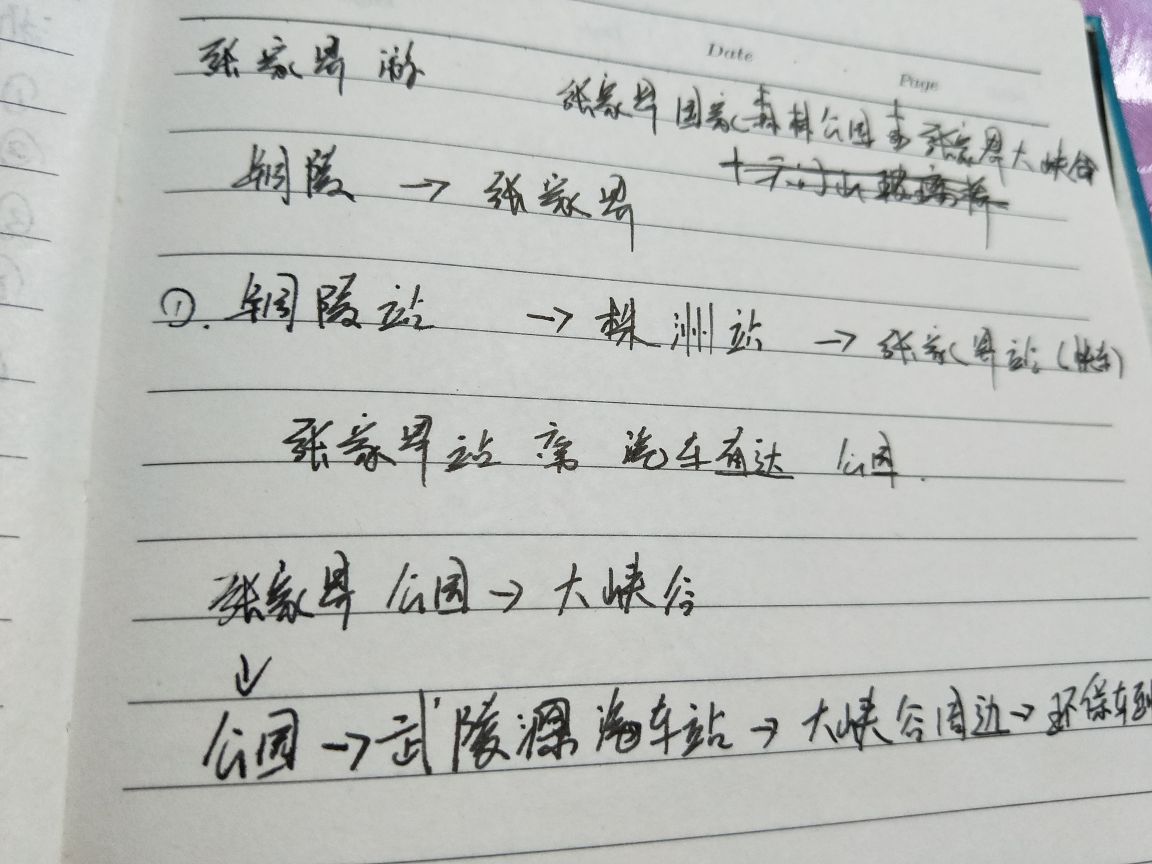 Date Page
张家界游
张家界国家森林公园 张家界大峡谷
铜陵 → 张家界
①. 铜陵站 → 株洲站 → 张家界站(快车)
张家界站 乘 汽车直达 公园.
张家界公园 → 大峡谷
↓
公园 → 武陵源汽车站 → 大峡谷周边 → 环保车到